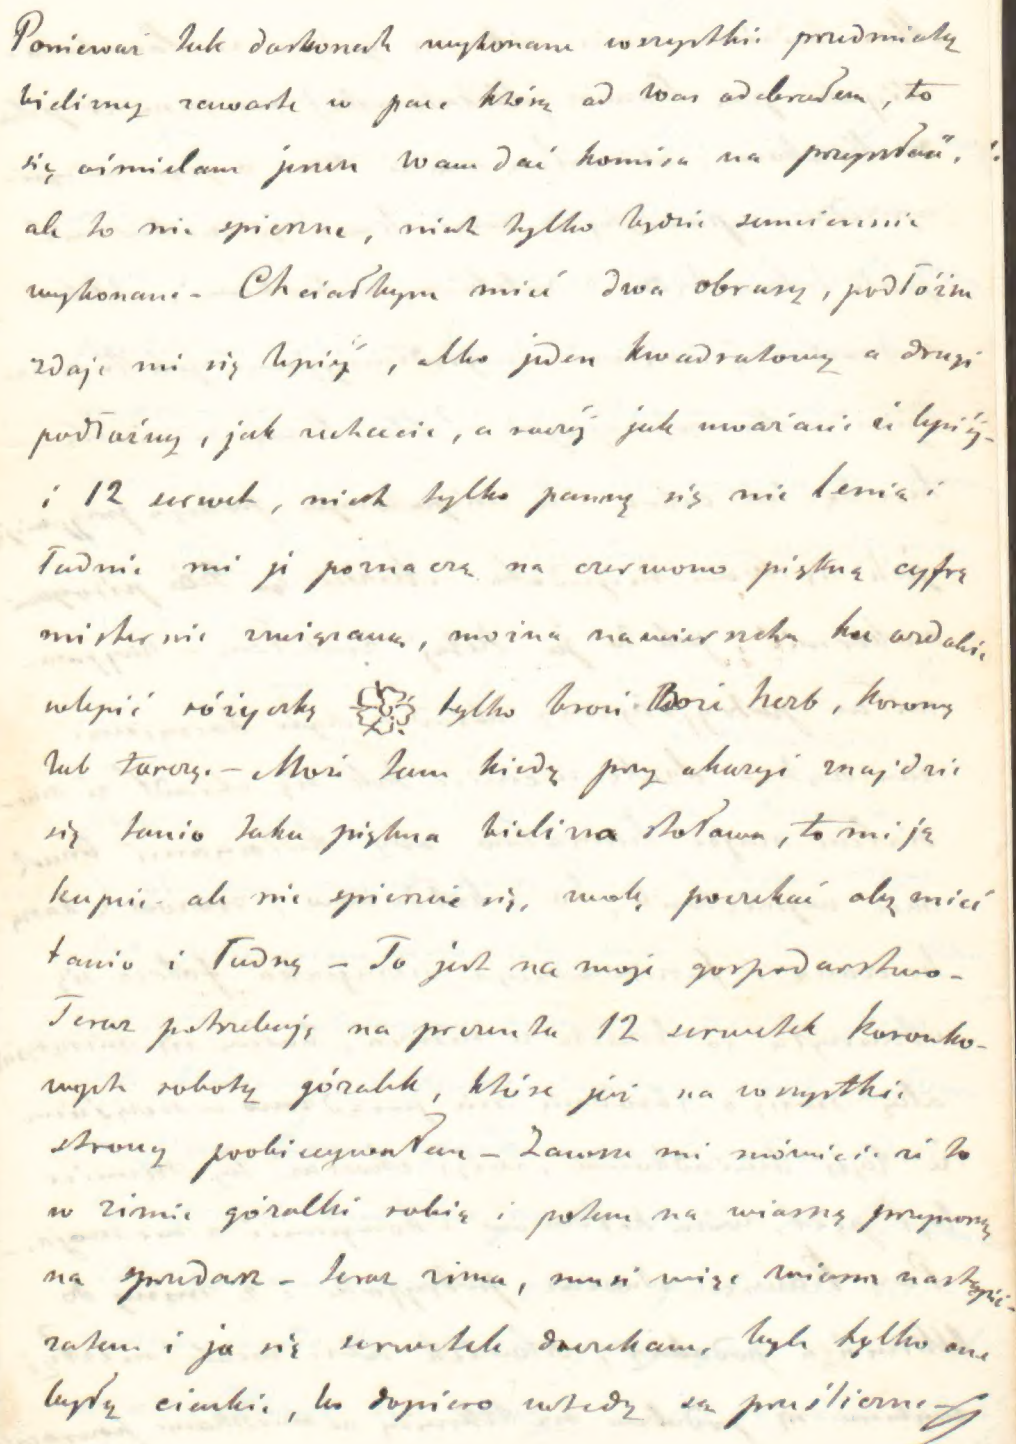 Ponieważ tak doskonale wykonane wszystkie przedmioty
bielizny zawarte w pace którą od Was odebrałem, to
się ośmielam jeszcze Wam dać komisa na przyszłość,
ale to nie spieszne, niech tylko będzie sumiennie
wykonane - Chciałbym mieć dwa obrusy, podłóżne
zdaje mi się lepiéj, albo jeden kwadratowy a drugi
podłużny, jak zechcecie, a raczéj jak uważacie że lepiéj -
i 12 serwet, niech tylko panny się nie lenią i
ładnie mi je poznaczą na czerwono piękną cyfrą
misternie związaną, można nawierzchu ku ozdobie
wlepić różyczkę tylko broń Boże herb, koronę
lub tarczę. - Może tam kiedy przy okazyi znajdzie
się tanio taka piękna bielizna stołowa, to mi ją
kupcie - ale nie spieszcie się, wolę poczekać aby mieć
tanio i ładną - To jest na moje gospodarstwo -
Teraz potrzebuję na prezenta 12 serwetek koronko-
wych roboty góralek, które już na wszystkie
strony poobiecywałem - Zawsze mi mówicie że to
w zimie góralki robią i potem na wiosnę przynoszą
na sprzedarz - teraz zima, musi więc wiosna nastąpić -
zatem i ja się serwetek doczekam, byle tylko one
były cienkie, bo dopiero wtedy są prześliczne -